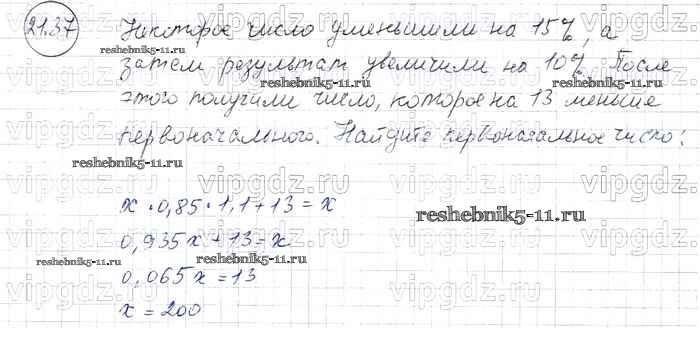 21.37
Некоторое число уменьшили на 15%, а
затем результат увеличили на 10%. После
этого получили число, которое на 13 меньше
первоначального. Найдите первоначальное число:
x · 0,85 · 1,1 + 13 = x
0,935x + 13 = x
0,065x = 13
x = 200
reshebnik5-11.ru
reshebnik5-11.ru
reshebnik5-11.ru
reshebnik5-11.ru
reshebnik5-11.ru
vipgdz.ru